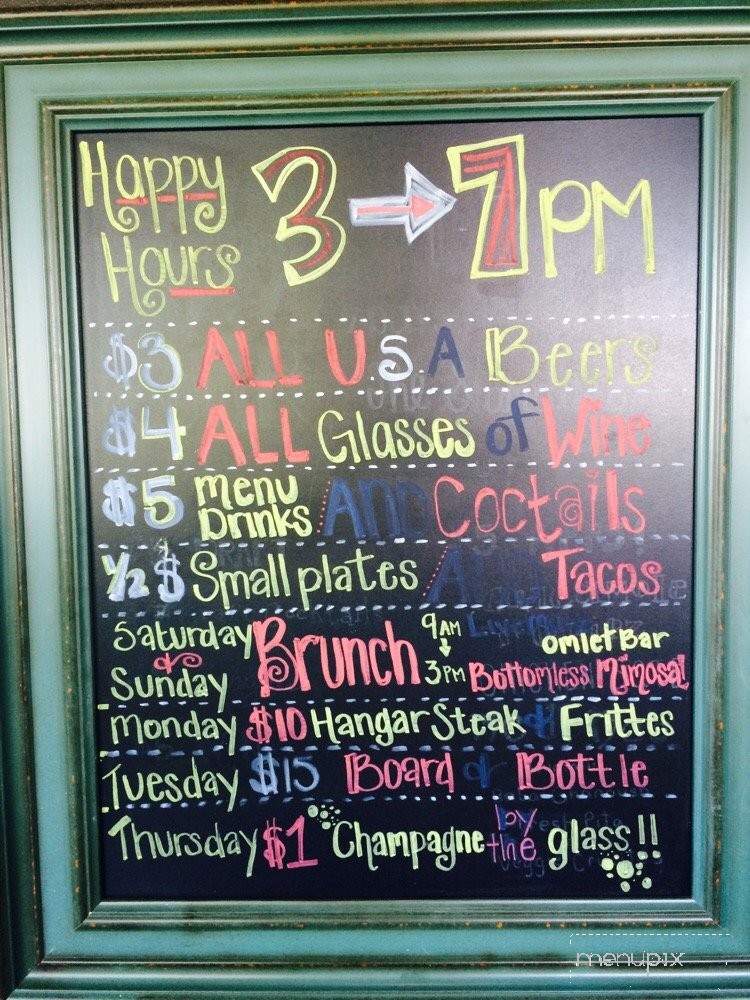 Happy Hours 3 → 7 PM
$3 ALL U.S.A Beers
$4 ALL Glasses of Wine
$5 menu Drinks AND Coctails
1/2 $ Small plates A Tacos
Saturday & Sunday Brunch 9 AM ↓ 3 PM omlet Bar Bottomless Mimosa!
Monday $10 Hangar Steak & Frittes
Tuesday $15 Board & Bottle
Thursday $1 Champagne by the glass!!
menupix